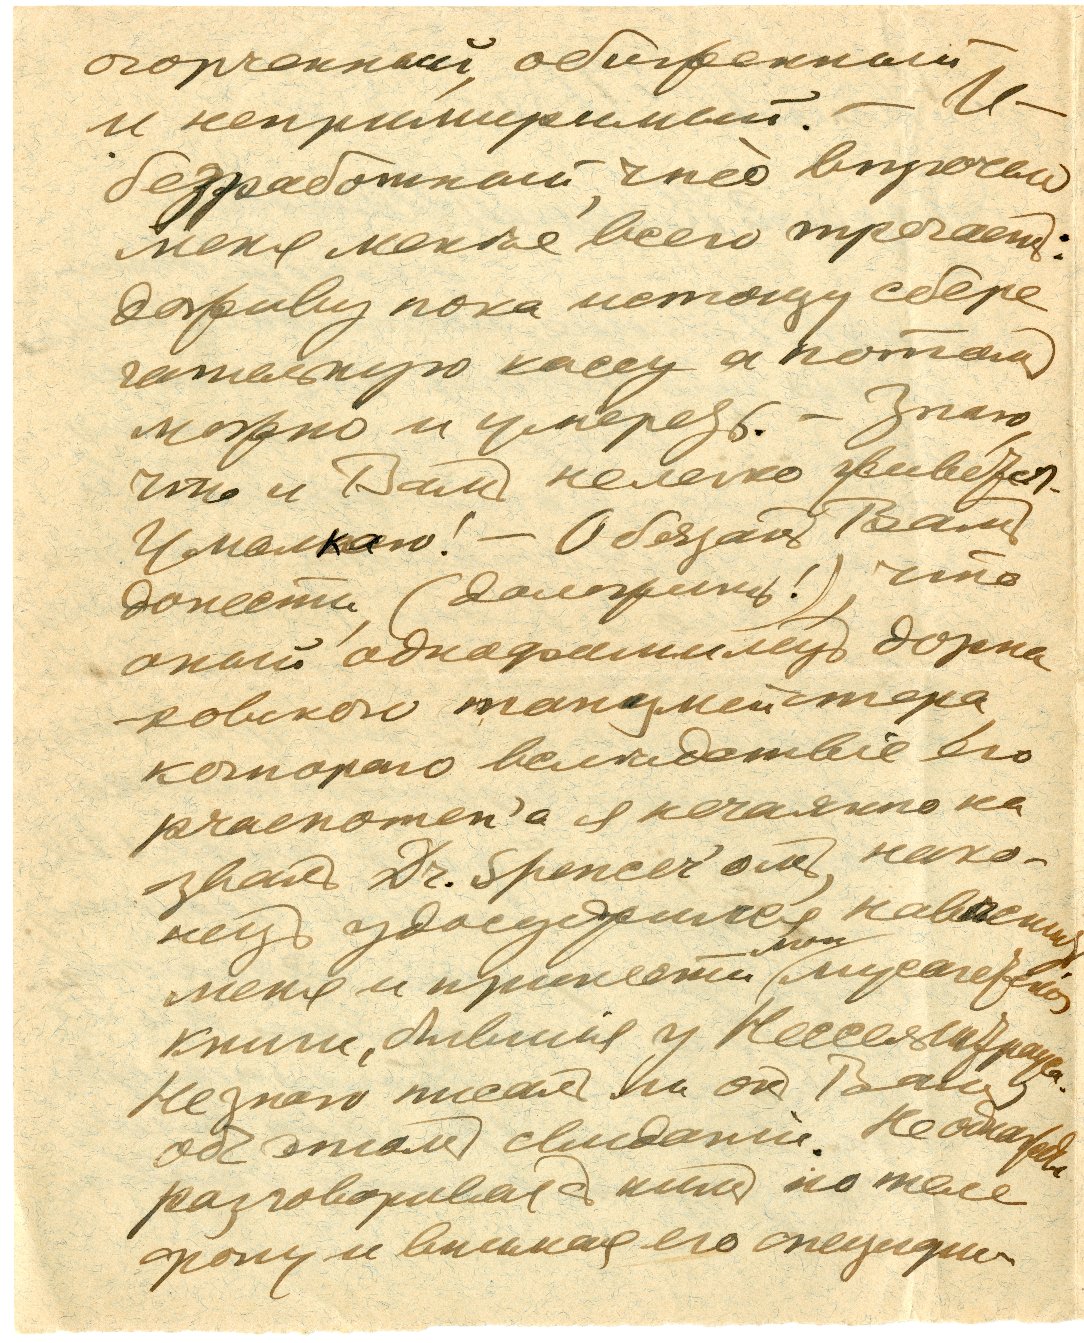 огорченный, обиженный
и непримиримый. — И —
безработный, что впрочем
меня менѣе всего трогаетъ:
доживу пока истощу сбере
гательную кассу а потомъ
можно и умереть. — Знаю,
что и Вамъ нелегко живется.
Умолкаю! — Обязанъ Вамъ
донести, (доложить!), что
оный однофамилецъ
танцмейстера
котораго вслѣдствіе его
я нечаянно на
звалъ Dr. Spencer'омъ, нако-
нецъ удосужился навѣстить
меня и принести мои мусагетскія
книги, бывшія у
Не знаю писалъ ли онъ Вамъ
объ этомъ свиданіи. Неоднажды
разговаривая съ нимъ по теле
фону и вникая его специфи